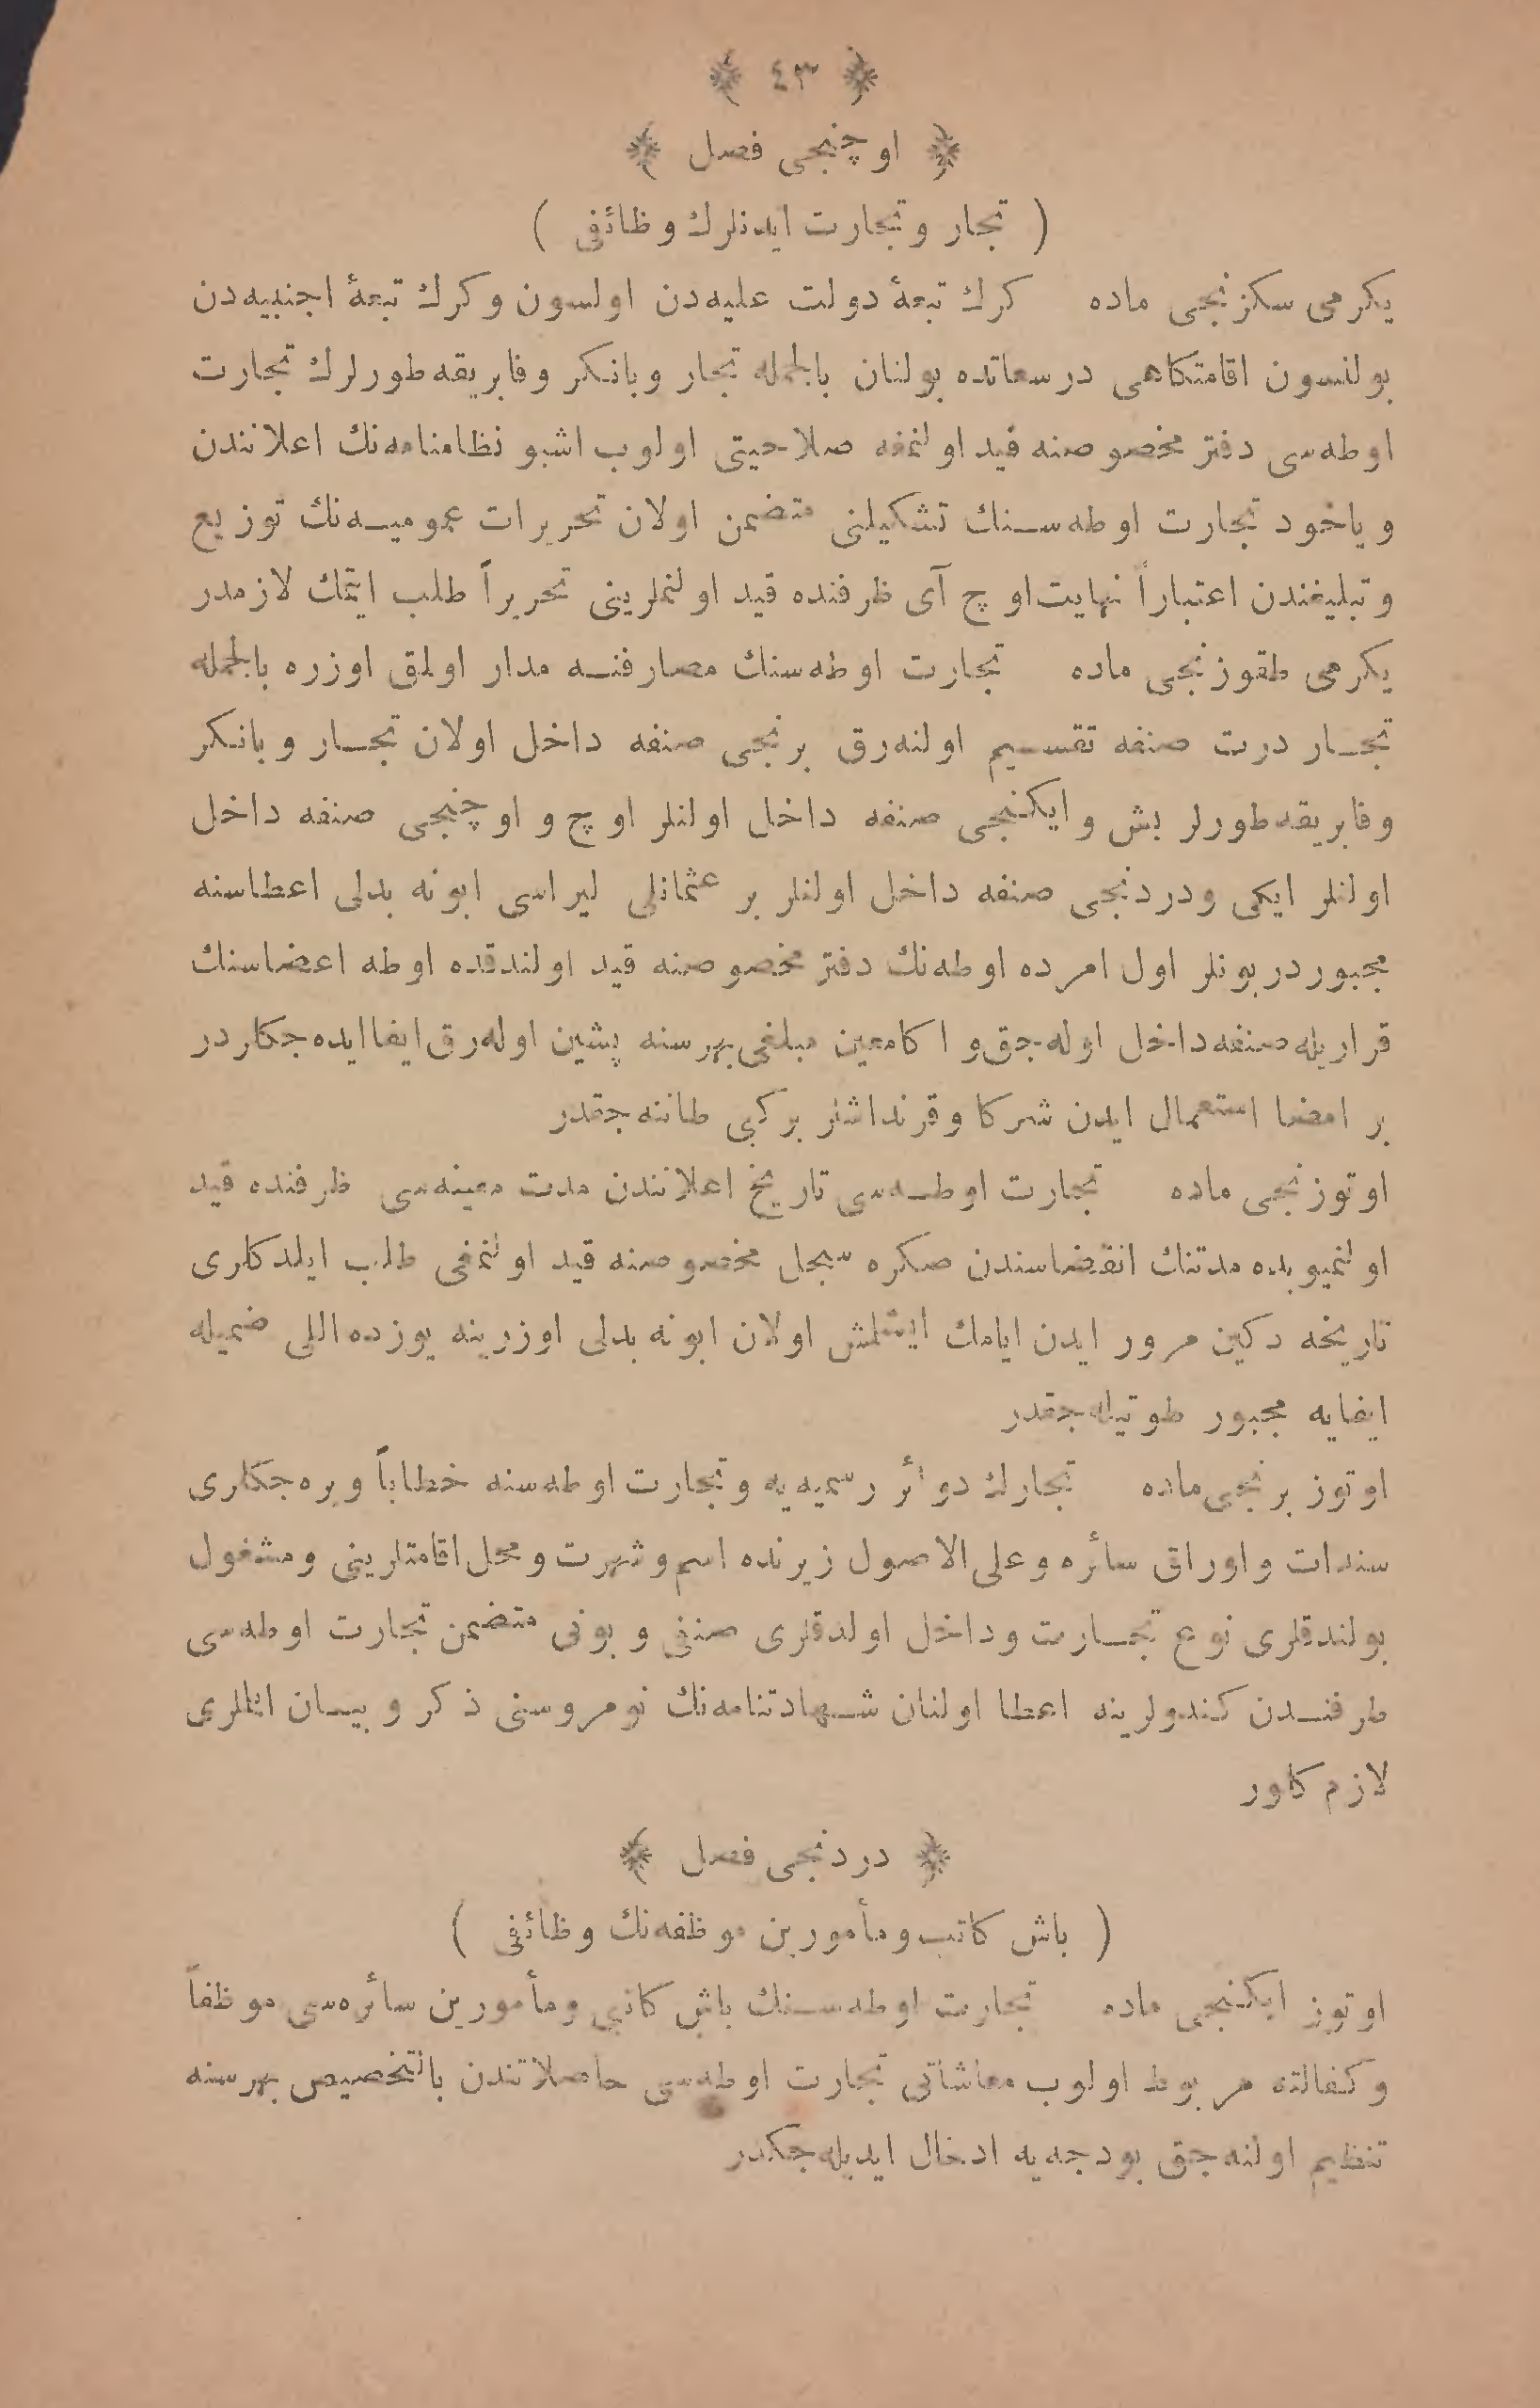 ﴿ ٤٣ ﴾
﴿ اوچنجی فصل ﴾
( تجار و تجارت ایدنلرك وظائفی )
یكرمی سكزنجی ماده كرك تبعۀ دولت علیه‌دن اولسون و كرك تبعۀ اجنبیه‌دن
بولنسون اقامتكاهی درسعاتده بولنان بالجمله تجار و بانكر و فابریقه‌طورلرك تجارت
اوطه‌سی دفتر مخصوصنه قید اولنمغه صلاحیتی اولوب اشبو نظامنامه‌نك اعلانندن
و یاخود تجارت اوطه‌سنك تشكیلنی متضمن اولان تحریرات عمومیه‌نك توزیع
و تبلیغندن اعتباراً نهایت اوچ آی ظرفنده قید اولنملرینی تحریراً طلب ایتمك لازمدر
یكرمی طقوزنجی ماده تجارت اوطه‌سنك مصارفنه مدار اولمق اوزره بالجمله
تجار درت صنفه تقسیم اولنه‌رق برنجی صنفه داخل اولان تجار و بانكر
و فابریقه‌طورلر بش و ایكنجی صنفه داخل اولنلر اوچ و اوچنجی صنفه داخل
اولنلر ایكی و دردنجی صنفه داخل اولنلر بر عثمانلی لیراسی ابونه بدلی اعطاسنه
مجبوردر بونلر اول امرده اوطه‌نك دفتر مخصوصنه قید اولندقده اوطه اعضاسنك
قراریله صنفه داخل اوله‌جق و اكا معین مبلغی بهرسنه پشین اوله‌رق ایفا ایده‌جكلردر
بر امضا استعمال ایدن شركا و قرنداشلر بر كبی طاننه‌جقدر
اوتوزنجی ماده تجارت اوطه‌سی تاریخ اعلانندن مدت معینه‌سی ظرفنده قید
اولنمیوبده مدتنك انقضاسندن صكره سجل مخصوصنه قید اولنمغی طلب ایلدكلری
تاریخه دكین مرور ایدن ایامك ایشلمش اولان ابونه بدلی اوزرینه یوزده اللی ضمیله
ایفایه مجبور طوتیله‌جقدر
اوتوز برنجی ماده تجارك دوائر رسمیه‌یه و تجارت اوطه‌سنه خطاباً ویره‌جكلری
سندات و اوراق سائره و علی الاصول زیرنده اسم و شهرت و محل اقامتلرینی و مشغول
بولندقلری نوع تجارت و داخل اولدقلری صنفی و بونی متضمن تجارت اوطه‌سی
طرفندن كندولرینه اعطا اولنان شهادتنامه‌نك نومروسنی ذكر و بیان اتمللری
لازم كلور
﴿ دردنجی فصل ﴾
( باش كاتب و مأمورین موظفه‌نك وظائفی )
اوتوز ایكنجی ماده تجارت اوطه‌سنك باش كاتبی و مأمورین سائره‌سی موظفاً
و كفالته مربوط اولوب معاشاتی تجارت اوطه‌سی حاصلاتندن بالتخصیص بهرسنه
تنظیم اولنه‌جق بودجه‌یه ادخال ایدیله‌جكدر